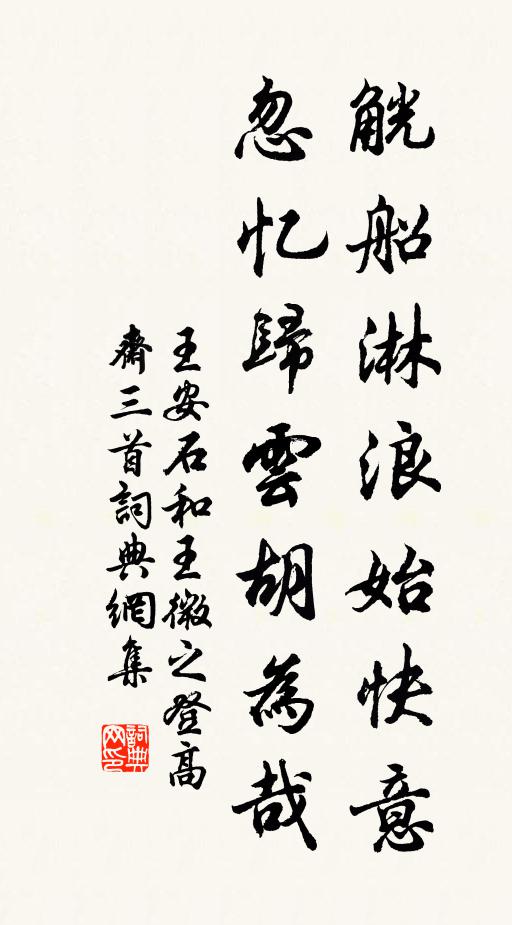 觥船淋浪始快意
忽忆歸雲胡為哉
王安石和王微之登高
齋三首詞典網集
詞典网印